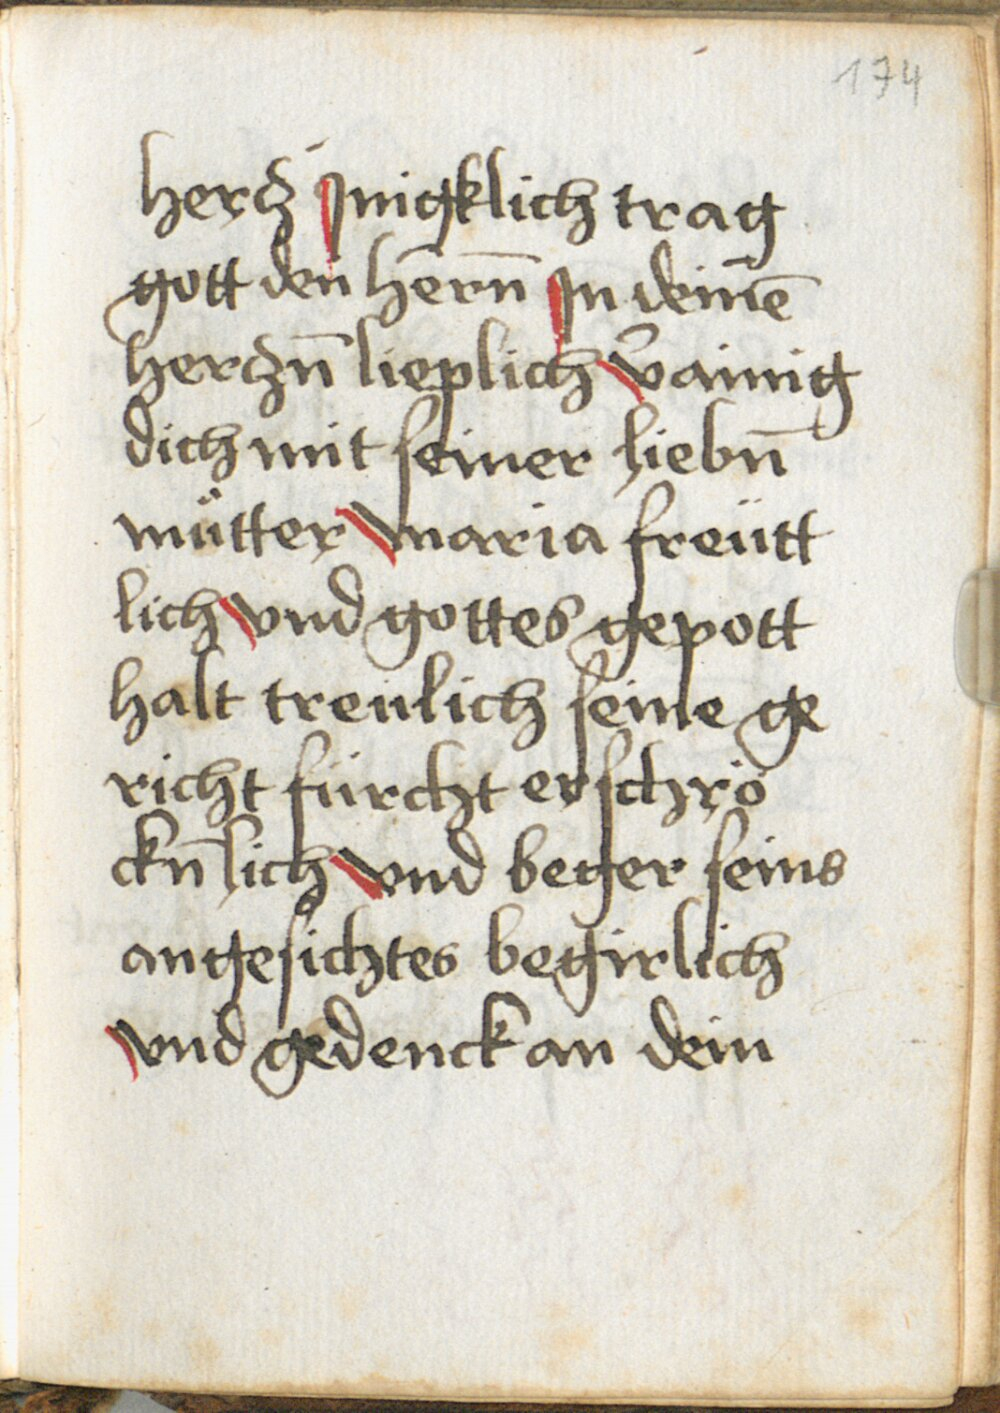 174
hercz Jnigklich trag
gott den herrn̄ Jn deinē
herczn̄ lieplich v̄ainig
dich mit seiner liebn̄
mütter maria freütt
lich vnd gottes gepott
halt treulich seine ge
richt fürcht erschrö
ckn̄lich vnd beger seins
angesichtes begirlich
vnd gedenck an dein